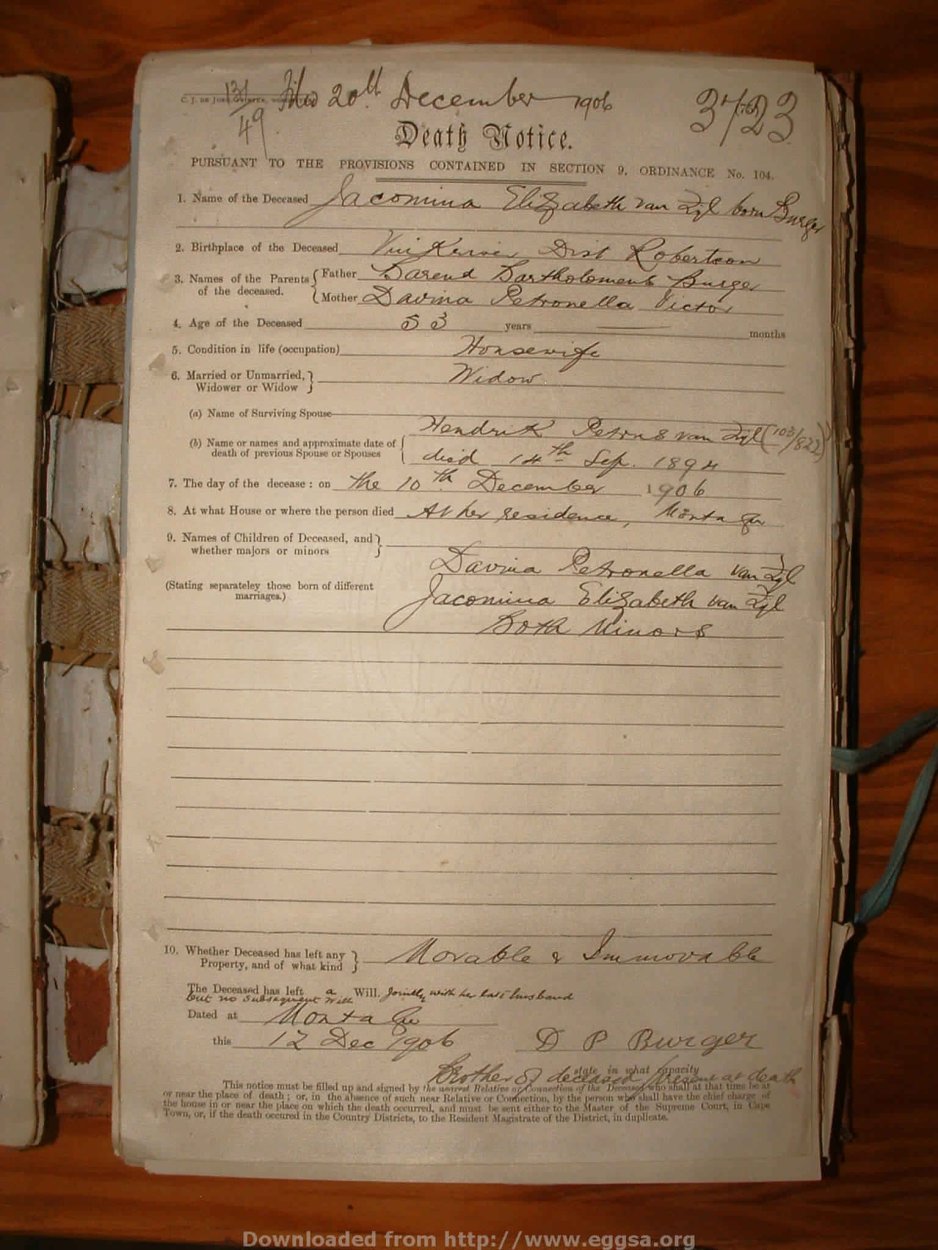 131/49 Filed 20th December 1906 3723
Death Notice.
PURSUANT TO THE PROVISIONS CONTAINED IN SECTION 9, ORDINANCE No. 104.
1. Name of the Deceased Jacomina Elizabeth van Zyl born Burger
2. Birthplace of the Deceased Dist Robertson
3. Names of the Parents of the deceased. { Father Barend Bartholomeus Burger
Mother Davina Petronella Victor
4. Age of the Deceased 53 years — months
5. Condition in life (occupation) Housewife
6. Married or Unmarried, Widower or Widow } Widow.
(a) Name of Surviving Spouse
Hendrik Petrus van Zyl (103/822)
(b) Name or names and approximate date of death of previous Spouse or Spouses { died 14th Sep. 1894
7. The day of the decease : on the 10th December 1906
8. At what House or where the person died At her residence, Montagu
9. Names of Children of Deceased, and whether majors or minors }
Davina Petronella van Zyl
(Stating separateley those born of different marriages.) Jacomina Elizabeth van Zyl
Both Minors
10. Whether Deceased has left any Property, and of what kind } Movable & Immovable
The Deceased has left a Will. Jointly with her late husband
but no subsequent will
Dated at Montagu
this 12 Dec 1906 D P Burger
state in what capacity
Brother of deceased present at death
This notice must be filled up and signed by the nearest Relative or Connection of the Deceased who shall at that time be at
or near the place of death ; or, in the absence of such near Relative or Connection, by the person who shall have the chief charge of
the house in or near the place on which the death occurred, and must be sent either to the Master of the Supreme Court, in Cape
Town, or, if the death occured in the Country Districts, to the Resident Magistrate of the District, in duplicate.
Downloaded from http://www.eggsa.org